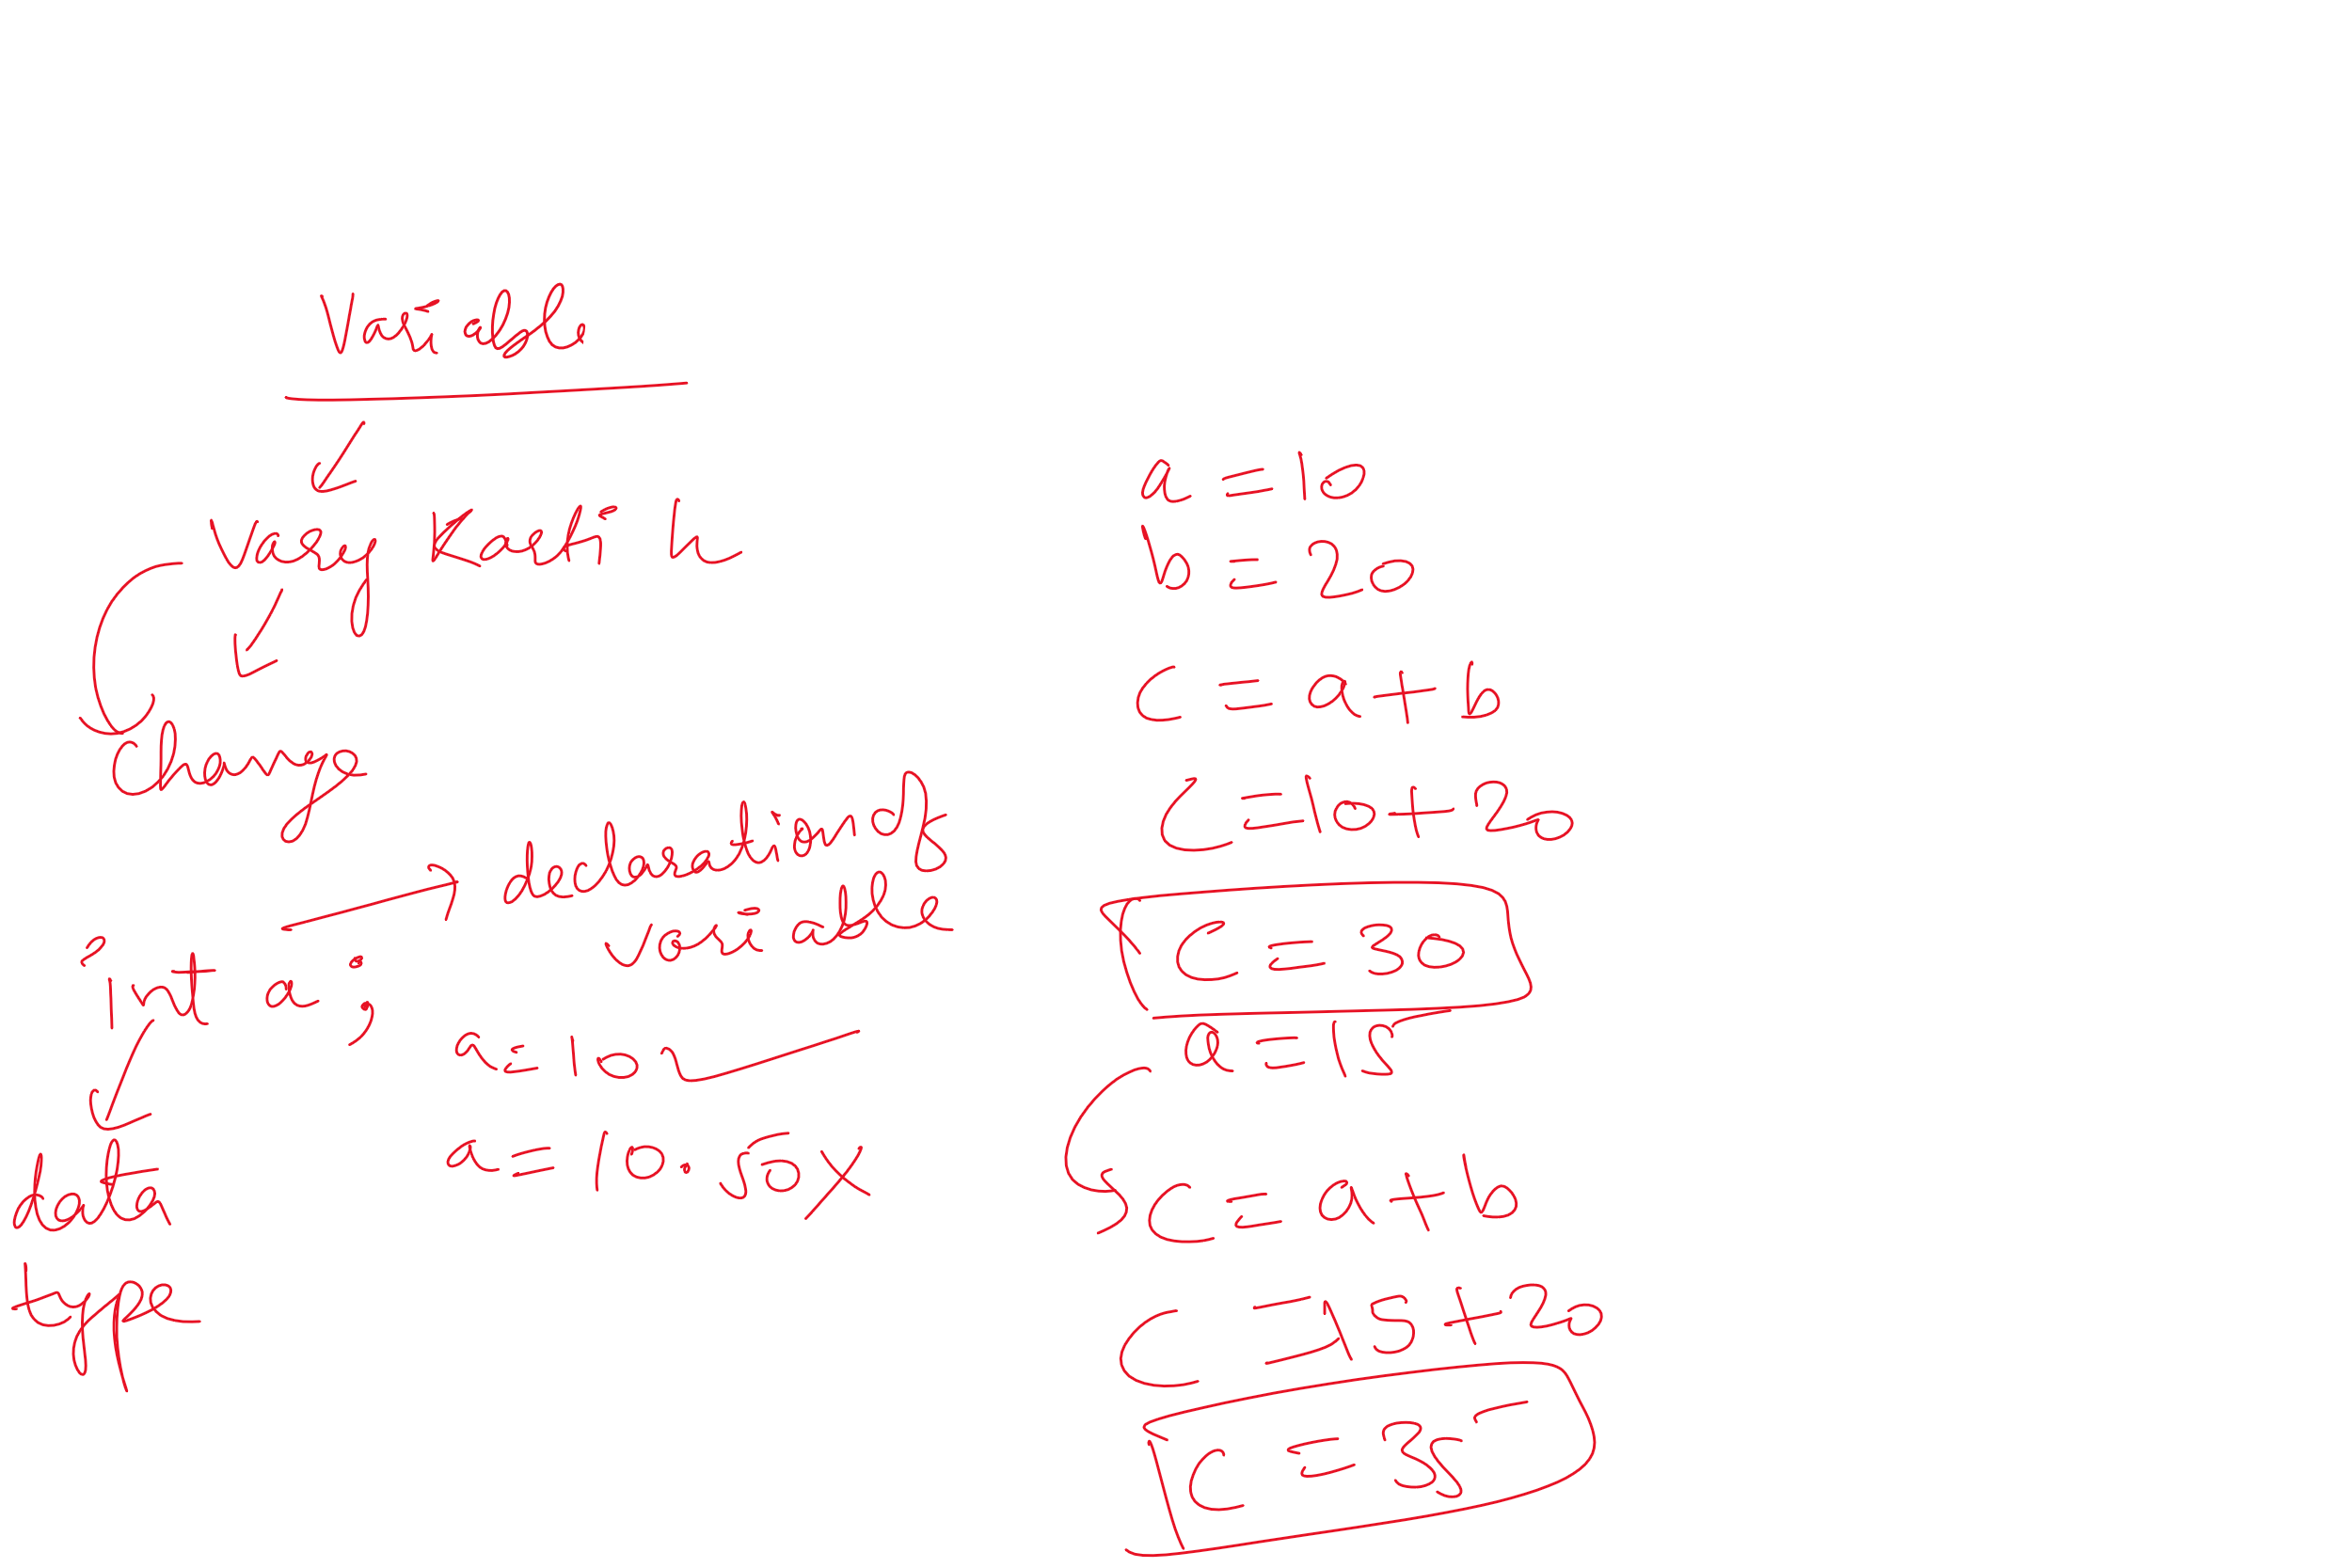 Variable
Vary Karti h
change
int a ;
declaration of
variable
a = 10
a = 10.50 X
data
type
a = 10
b = 20
c = a + b
c = 10 + 20
c = 30
a = 15
c = a + b
c = 15 + 20
c = 35